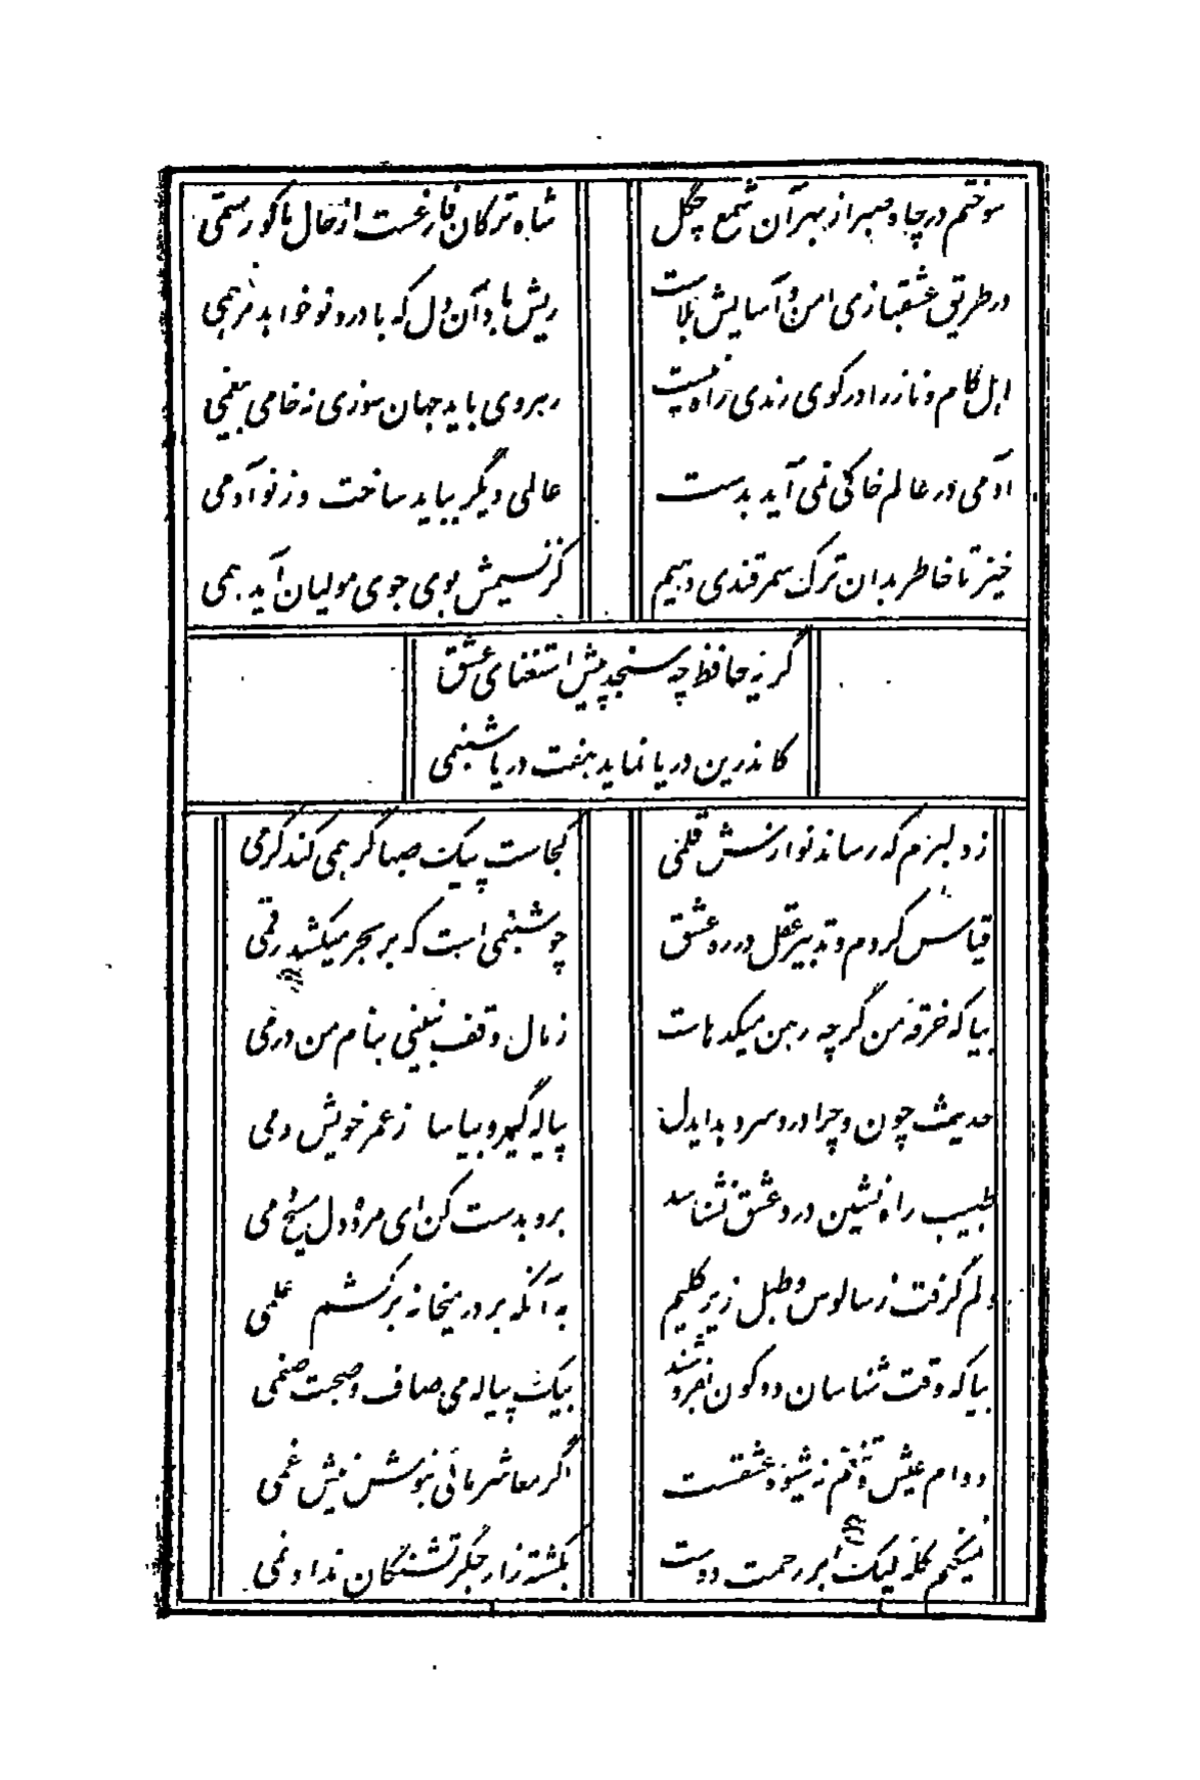 سوختم در چاه صبر از بهر آن شمع چگل
شاه ترکان فارغست از حال ما کو رستمی
در طریق عشقبازی امن و آسایش بلاست
ریش باد آن دل که با درد تو خواهد مرهمی
اهل کام و ناز را در کوی رندی راه نیست
رهروی باید جهان سوزی نه خامی بیغمی
آدمی در عالم خاکی نمی آید بدست
عالمی دیگر بباید ساخت وز نو آدمی
خیز تا خاطر بدان ترک سمرقندی دهیم
کز نسیمش بوی جوی مولیان آید همی
گریه حافظ چه سنجد پیش استغنای عشق
کاندرین دریا نماید هفت دریا شبنمی
ز دلبرم که رساند نوازش قلمی
کجاست پیک صبا گر همی کند کرمی
قیاس کردم و تدبیر عقل در ره عشق
چو شبنمی است که بر بحر میکشد رقمی
بیا که خرقه من گرچه رهن میکدهاست
ز مال وقف نبینی بنام من درمی
حدیث چون و چرا درد سر دهد ایدل
پیاله گیر و بیاسا ز عمر خویش دمی
طبیب راه نشین درد عشق نشناسد
برو بدست کن ای مرده دل مسیح دمی
دلم گرفت ز سالوس و طبل زیر گلیم
به آنکه بر در میخانه برکشم علمی
بیا که وقت شناسان دو کون بفروشند
بیک پیاله می صاف و صحبت صنمی
دوام عیش و تنعم نه شیوه عشقست
اگر معاشر مائی بنوش نیش غمی
نمیکنم گله لیک ابر رحمت دوست
بکشته زار جگر تشنگان نداد نمی